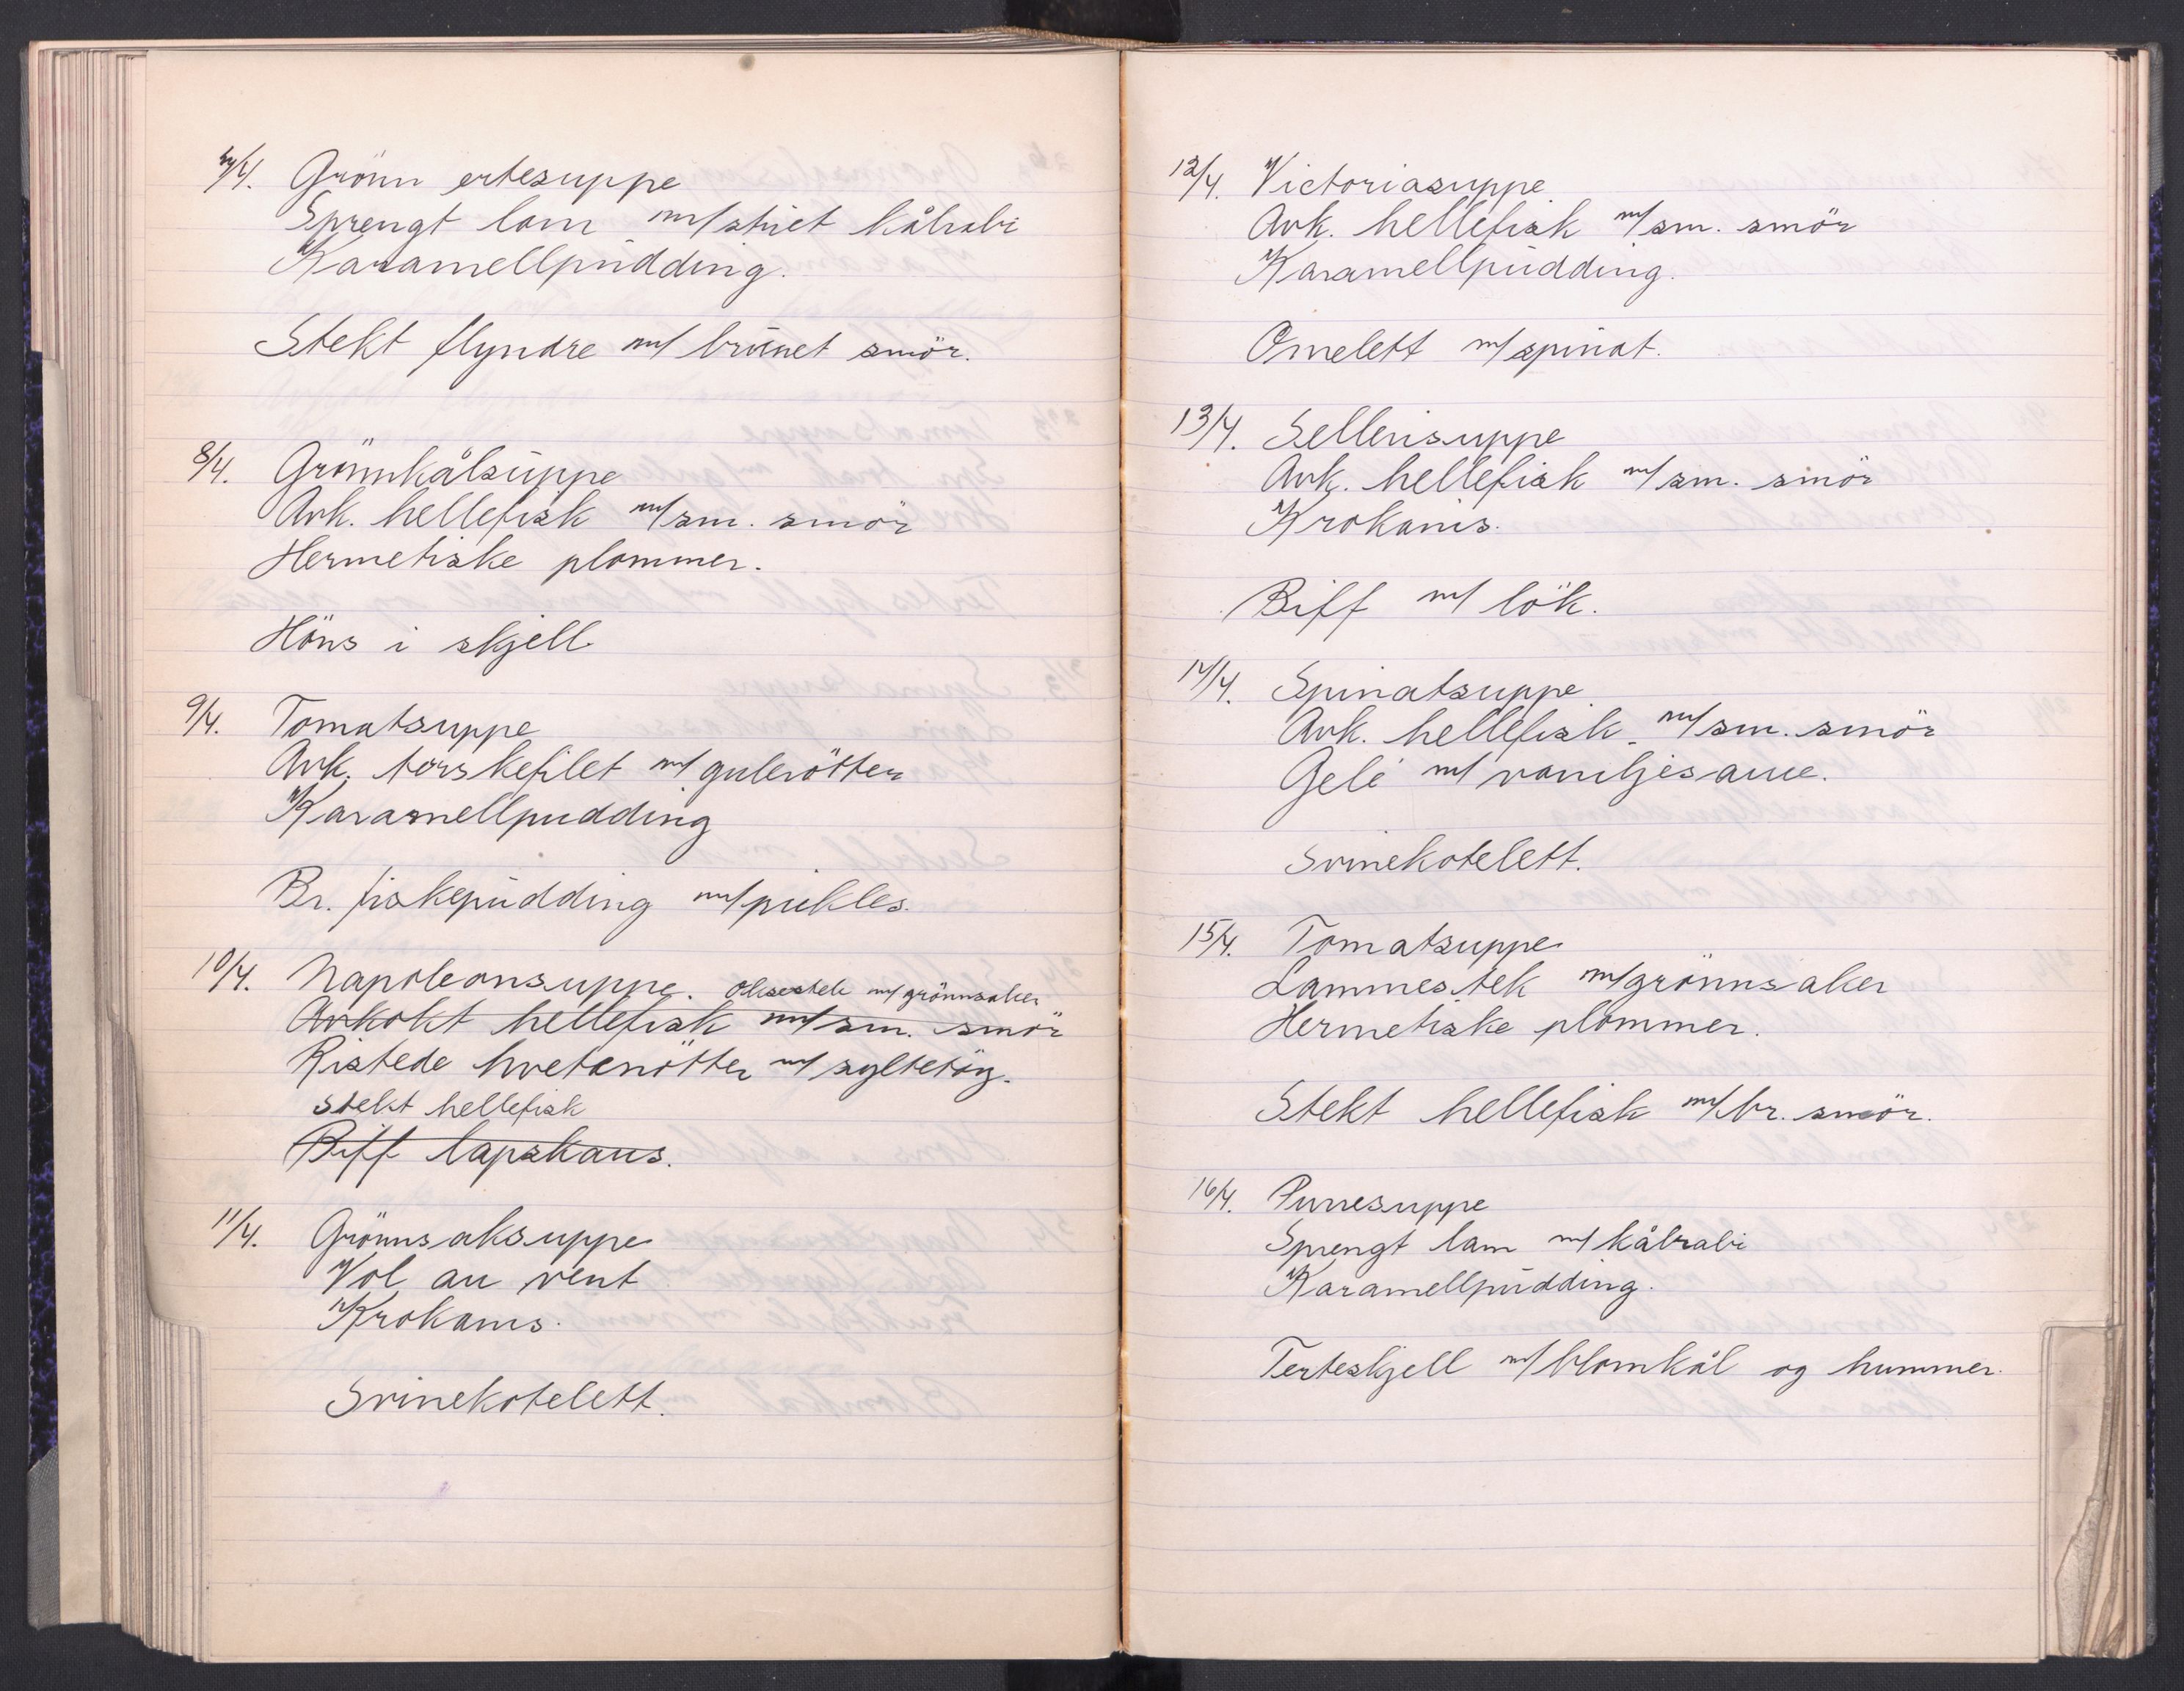 7/4. Grönn ertesuppe
Sprengt lam m/stuet kålrabi
Karamellpudding.
Stekt flyndre m/ brunet smör.
8/4. Grönnkålsuppe
Avk. hellefisk m/sm. smör
Hermetiske plommer.
Höns i skjell.
9/4. Tomatsuppe
Avk. torskefilet m/gulerötter
Karamellpudding
Br. fiskepudding m/pickles.
10/4. Napoleonsuppe. Oksestek m/grönnsaker
Avkokt hellefisk m/sm. smör
Ristede hvetenötter m/ syltetöy.
Stekt hellefisk
Biff lapskaus.
11/4. Grönnsaksuppe
Vol au vent
Krokanis.
Svinekotelett.
12/4. Victoriasuppe
Avk. hellefisk m/sm. smör
Karamellpudding.
Omelett m/spinat.
13/4. Sellerisuppe
Avk. hellefisk m/sm. smör
Krokanis.
Biff m/ lök.
14/4. Spinatsuppe
Avk. hellefisk m/sm. smör
Gelé m/ vaniljesaus.
Svinekotelett.
15/4. Tomatsuppe
Lammestek m/grönnsaker
Hermetiske plommer.
Stekt hellefisk m/br. smör.
16/4. Purresuppe
Sprengt lam m/kålrabi
Karamellpudding.
Terteskjell m/blomkål og hummer.